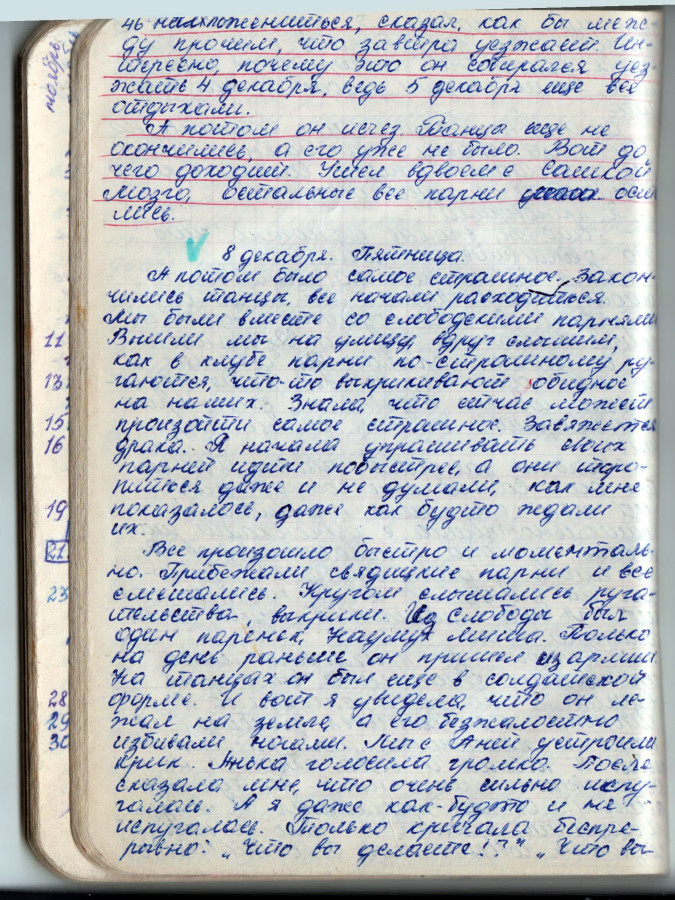 сказал, как бы меж-
ду прочим, что завтра уезжает. Ин-
тересно, почему это он собирался уез-
жать 4 декабря, ведь 5 декабря еще все
отдыхали.
А потом он исчез. Танцы еще не
окончились, а его уже не было. Вот до
чего доходит. Ушел вдвоем с Сашкой
Мозго, остальные все парни оста
лись.
8 декабря. Пятница.
А потом было самое страшное. Закон-
чились танцы, все начали расходиться.
Мы были вместе со слободскими парнями.
Вышли мы на улицу, вдруг слышим,
как в клубе парни по-страшному ру-
гаются, что-то выкрикивают обидное
на наших. Знала, что сейчас может
произойти самое страшное. Завяжется
драка. Я начала упрашивать своих
парней идти побыстрее, а они торо-
питься даже и не думали, как мне
показалось, даже как будто ждали
их.
Все произошло быстро и моменталь-
но. Прибежали свядицкие парни и все
смешались. Кругом слышались руга-
тельства, выкрики. Из Слободы был
один паренек, Наумук Миша. Только
на день раньше он пришел из армии.
На танцах он был еще в солдатской
форме. И вот я увидела, что он ле-
жал на земле, а его безжалостно
избивали ногами. Мы с Аней устроили
крик. Анька голосила громко. После
сказала мне, что очень сильно испу-
галась. А я даже как-будто и не
испугалась. Только кричала беспре-
рывно: „Что вы делаете!?" „Что вы
ноябрь
11
13
15
16
19
21
23
28
29
30